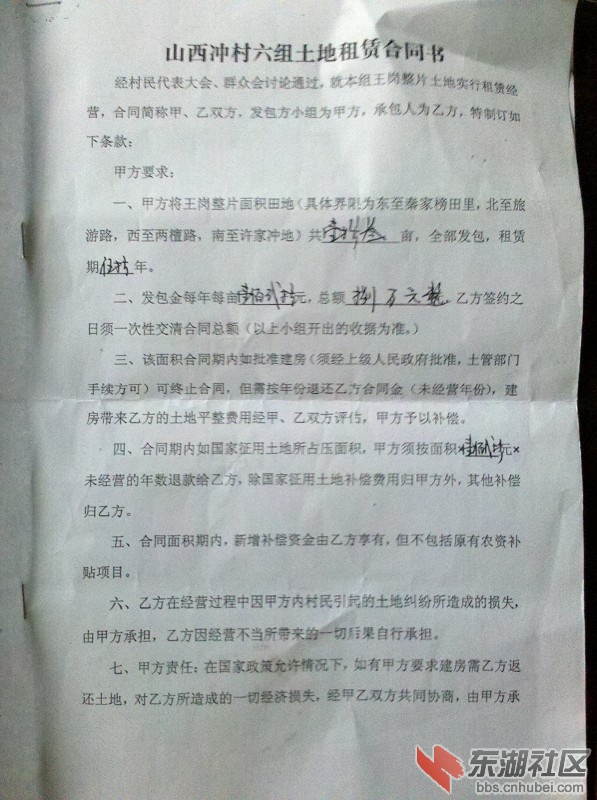 山西冲村六组土地租赁合同书
经村民代表大会、群众会讨论通过，就本组王岗整片土地实行租赁经
营，合同简称甲、乙双方，发包方小组为甲方，承包人为乙方，特制订如
下条款：
甲方要求：
一、甲方将王岗整片面积田地（具体界限为东至秦家榜田里，北至旅
游路，西至两檀路、南至许家冲地）共壹拾叁亩，全部发包，租赁
期伍拾年。
二、发包金每年每亩壹佰贰拾元，总额 捌万元整，乙方签约之
日须一次性交清合同总额（以上小组开出的收据为准。）
三、该面积合同期内如批准建房（须经上级人民政府批准，土管部门
手续方可）可终止合同，但需按年份退还乙方合同金（未经营年份），建
房带来乙方的土地平整费用经甲、乙双方评估，甲方予以补偿。
四、合同期内如国家征用土地所占压面积，甲方须按面积×壹佰贰拾元×
未经营的年数退款给乙方，除国家征用土地补偿费用归甲方外，其他补偿
归乙方。
五、合同面积期内，新增补偿资金由乙方享有，但不包括原有农资补
贴项目。
六、乙方在经营过程中因甲方内村民引起的土地纠纷所造成的损失，
由甲方承担，乙方因经营不当所带来的一切后果自行承担。
七、甲方责任：在国家政策允许情况下，如有甲方要求建房需乙方返
还土地，对乙方所造成的一切经济损失，经甲乙双方共同协商，由甲方承
东湖社区
bbs.cnhubei.com